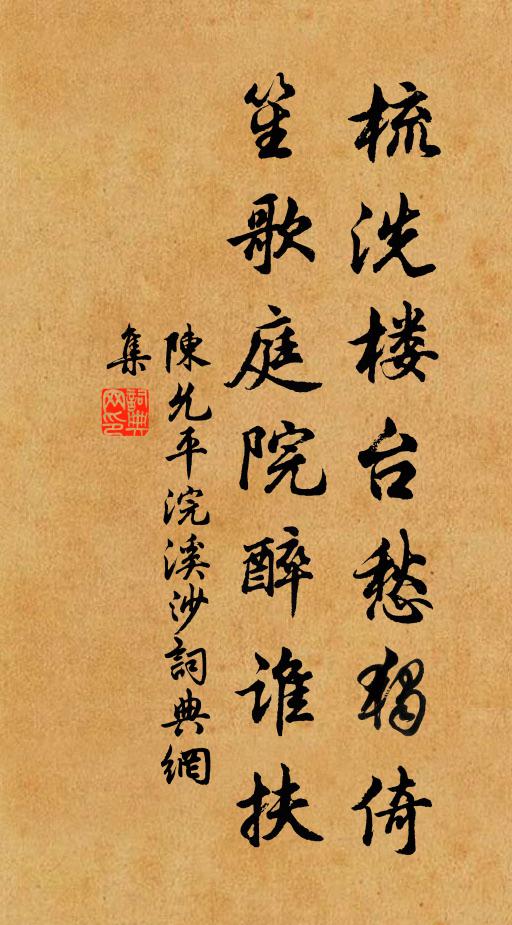 梳洗楼台愁独倚
笙歌庭院醉谁扶
陳允平浣溪沙詞典網
集
詞典
网印